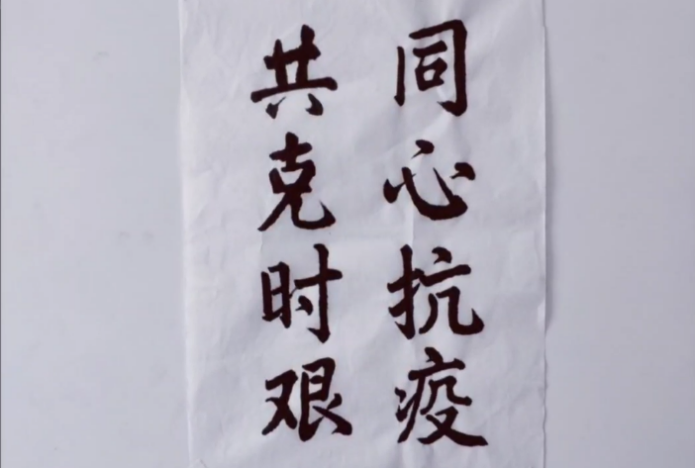 同心抗疫
共克时艰